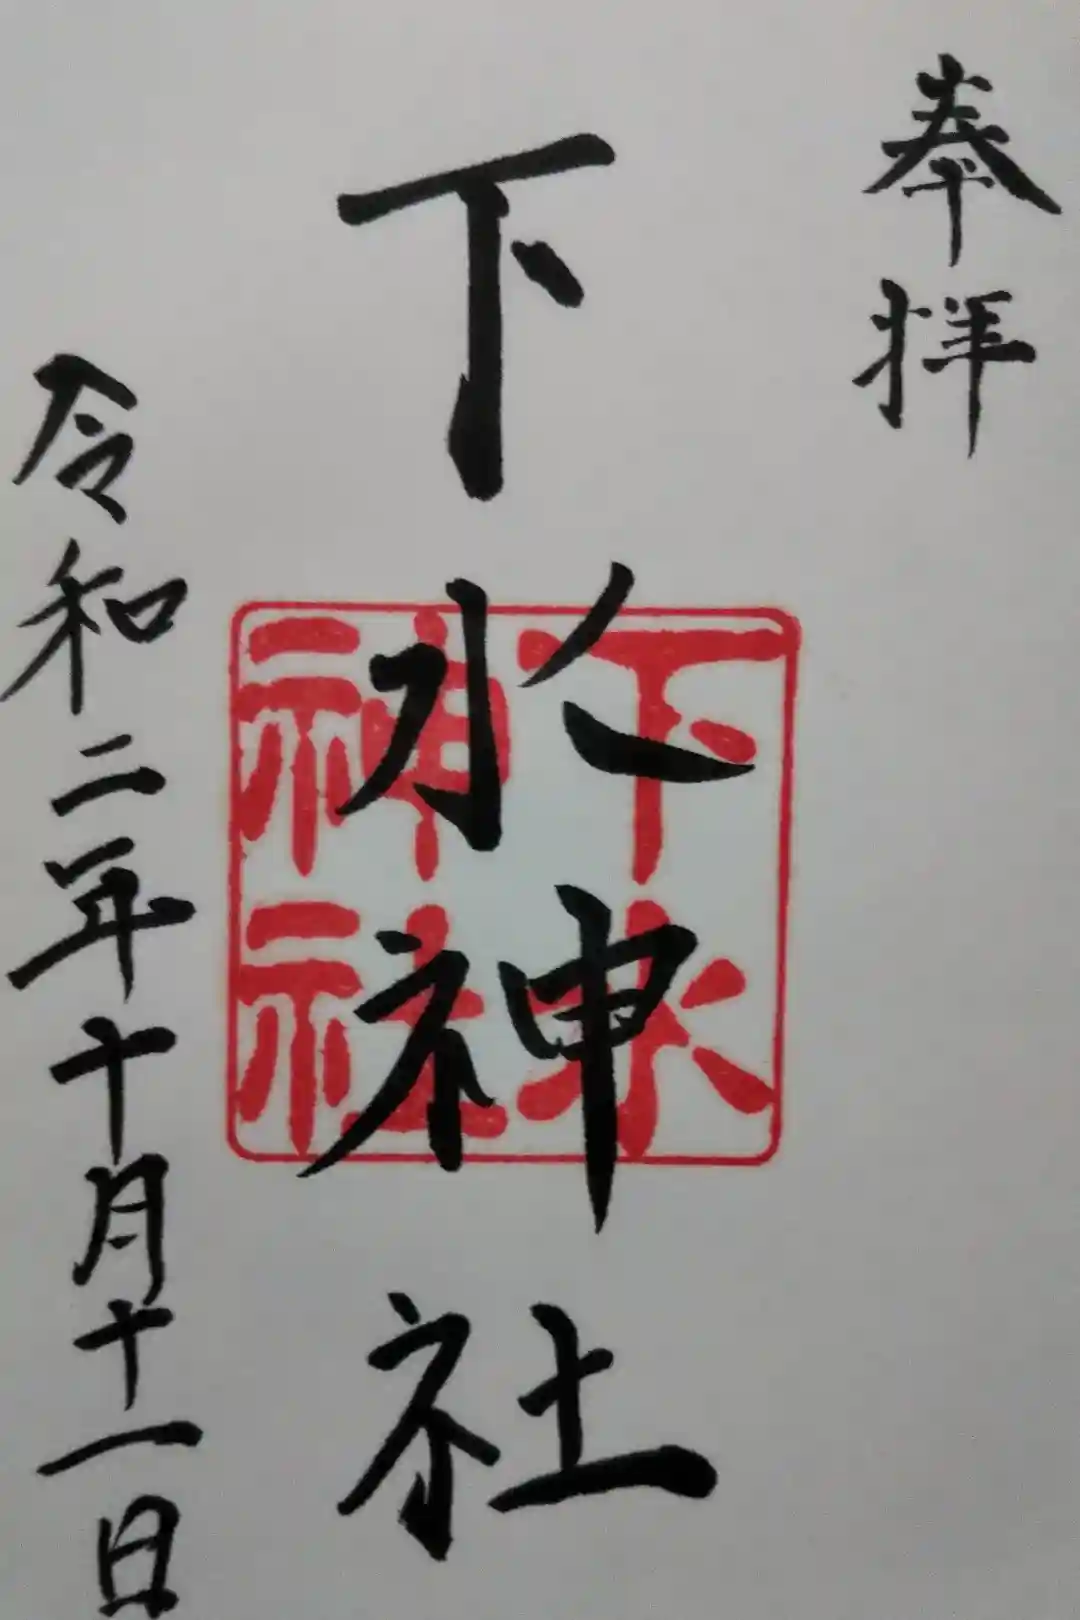 奉拝
下水神社
下水
神社
令和二年十月十一日